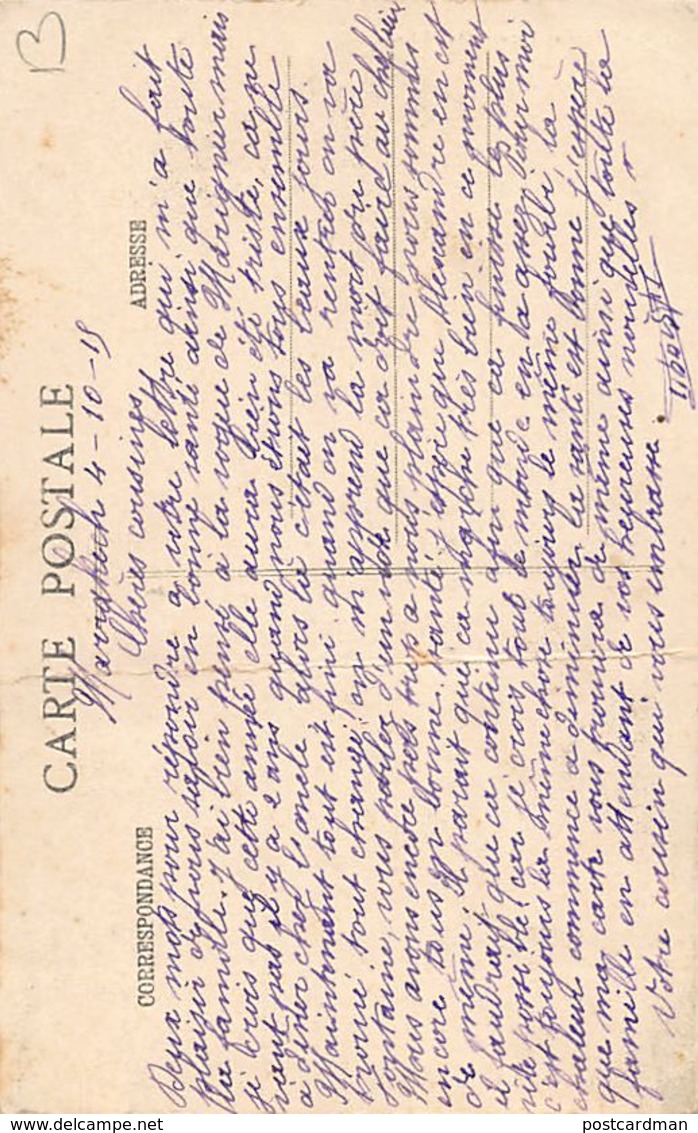 B
CARTE POSTALE
CORRESPONDANCE
ADRESSE
Marrakech 4-10-15
Chères cousines
Deux mots pour répondre a votre lettre qui m'a fait
plaisir de vous savoir en bonne santé ainsi que toute
la famille. J'ai bien pensé à la vogue de Marignier mais
je crois que cette année elle aura bien été triste, ca ne
vaut pas il y a 2 ans quand nous étions tous ensemble
a diner chez l'oncle alors là c'était les beaux jours.
Maintenant tout est fini quand on va rentrer on va
trouvé tout changé, on m'apprend la mort du frère
Fontaine, vous parlez d'un vide que ca doit faire au
Nous avons encore pas trop a nous plaindre nous sommes
encore tous en bonne santé j'espère que Alexandre en est
de même. Il parait que ca marche très bien en ce moment
il faudrait que ca continu afin que ca finisse le plus
vite possible car je crois tout le monde en la assez. Pour moi
c'est toujours la même chose toujours le même fourbi, la
chaleur commence a diminuer, la santé est bonne j'espère
que ma carte vous trouvera de même ainsi que toute la
famille en attendant de vos heureuses nouvelles
Votre cousin qui vous embrasse.
delcampe.net
postcardman